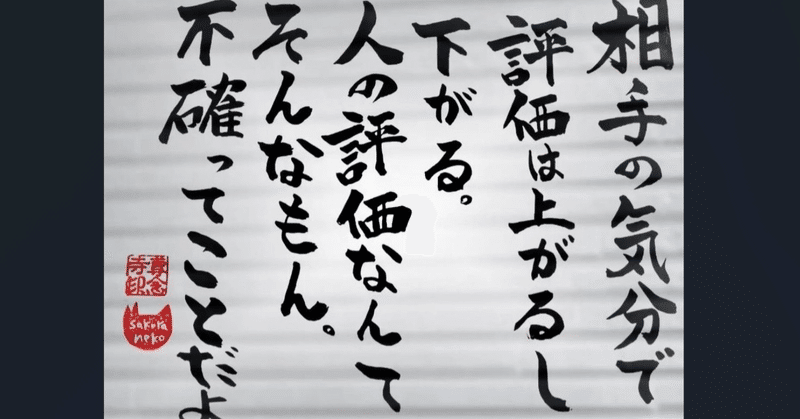 相手の気分で
評価は上がるし
下がる。
人の評価なんて
そんなもん。
不確ってことだよ
sakura
neko